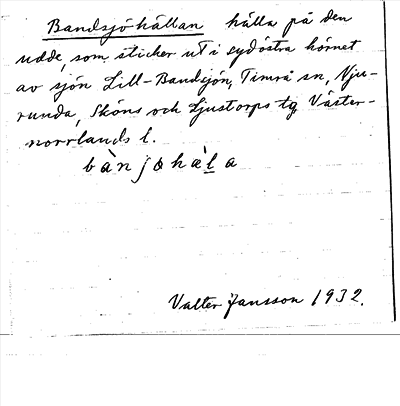 Bandsjöhällan hälla på den
udde, som sticker ut i sydöstra hörnet
av sjön Lill-Bandsjön, Timrå sn, Nju-
runda, Sköns och Ljustorps tg, Väster-
norrlands l.
bànjohæ̀la
Valter Jansson 1932.